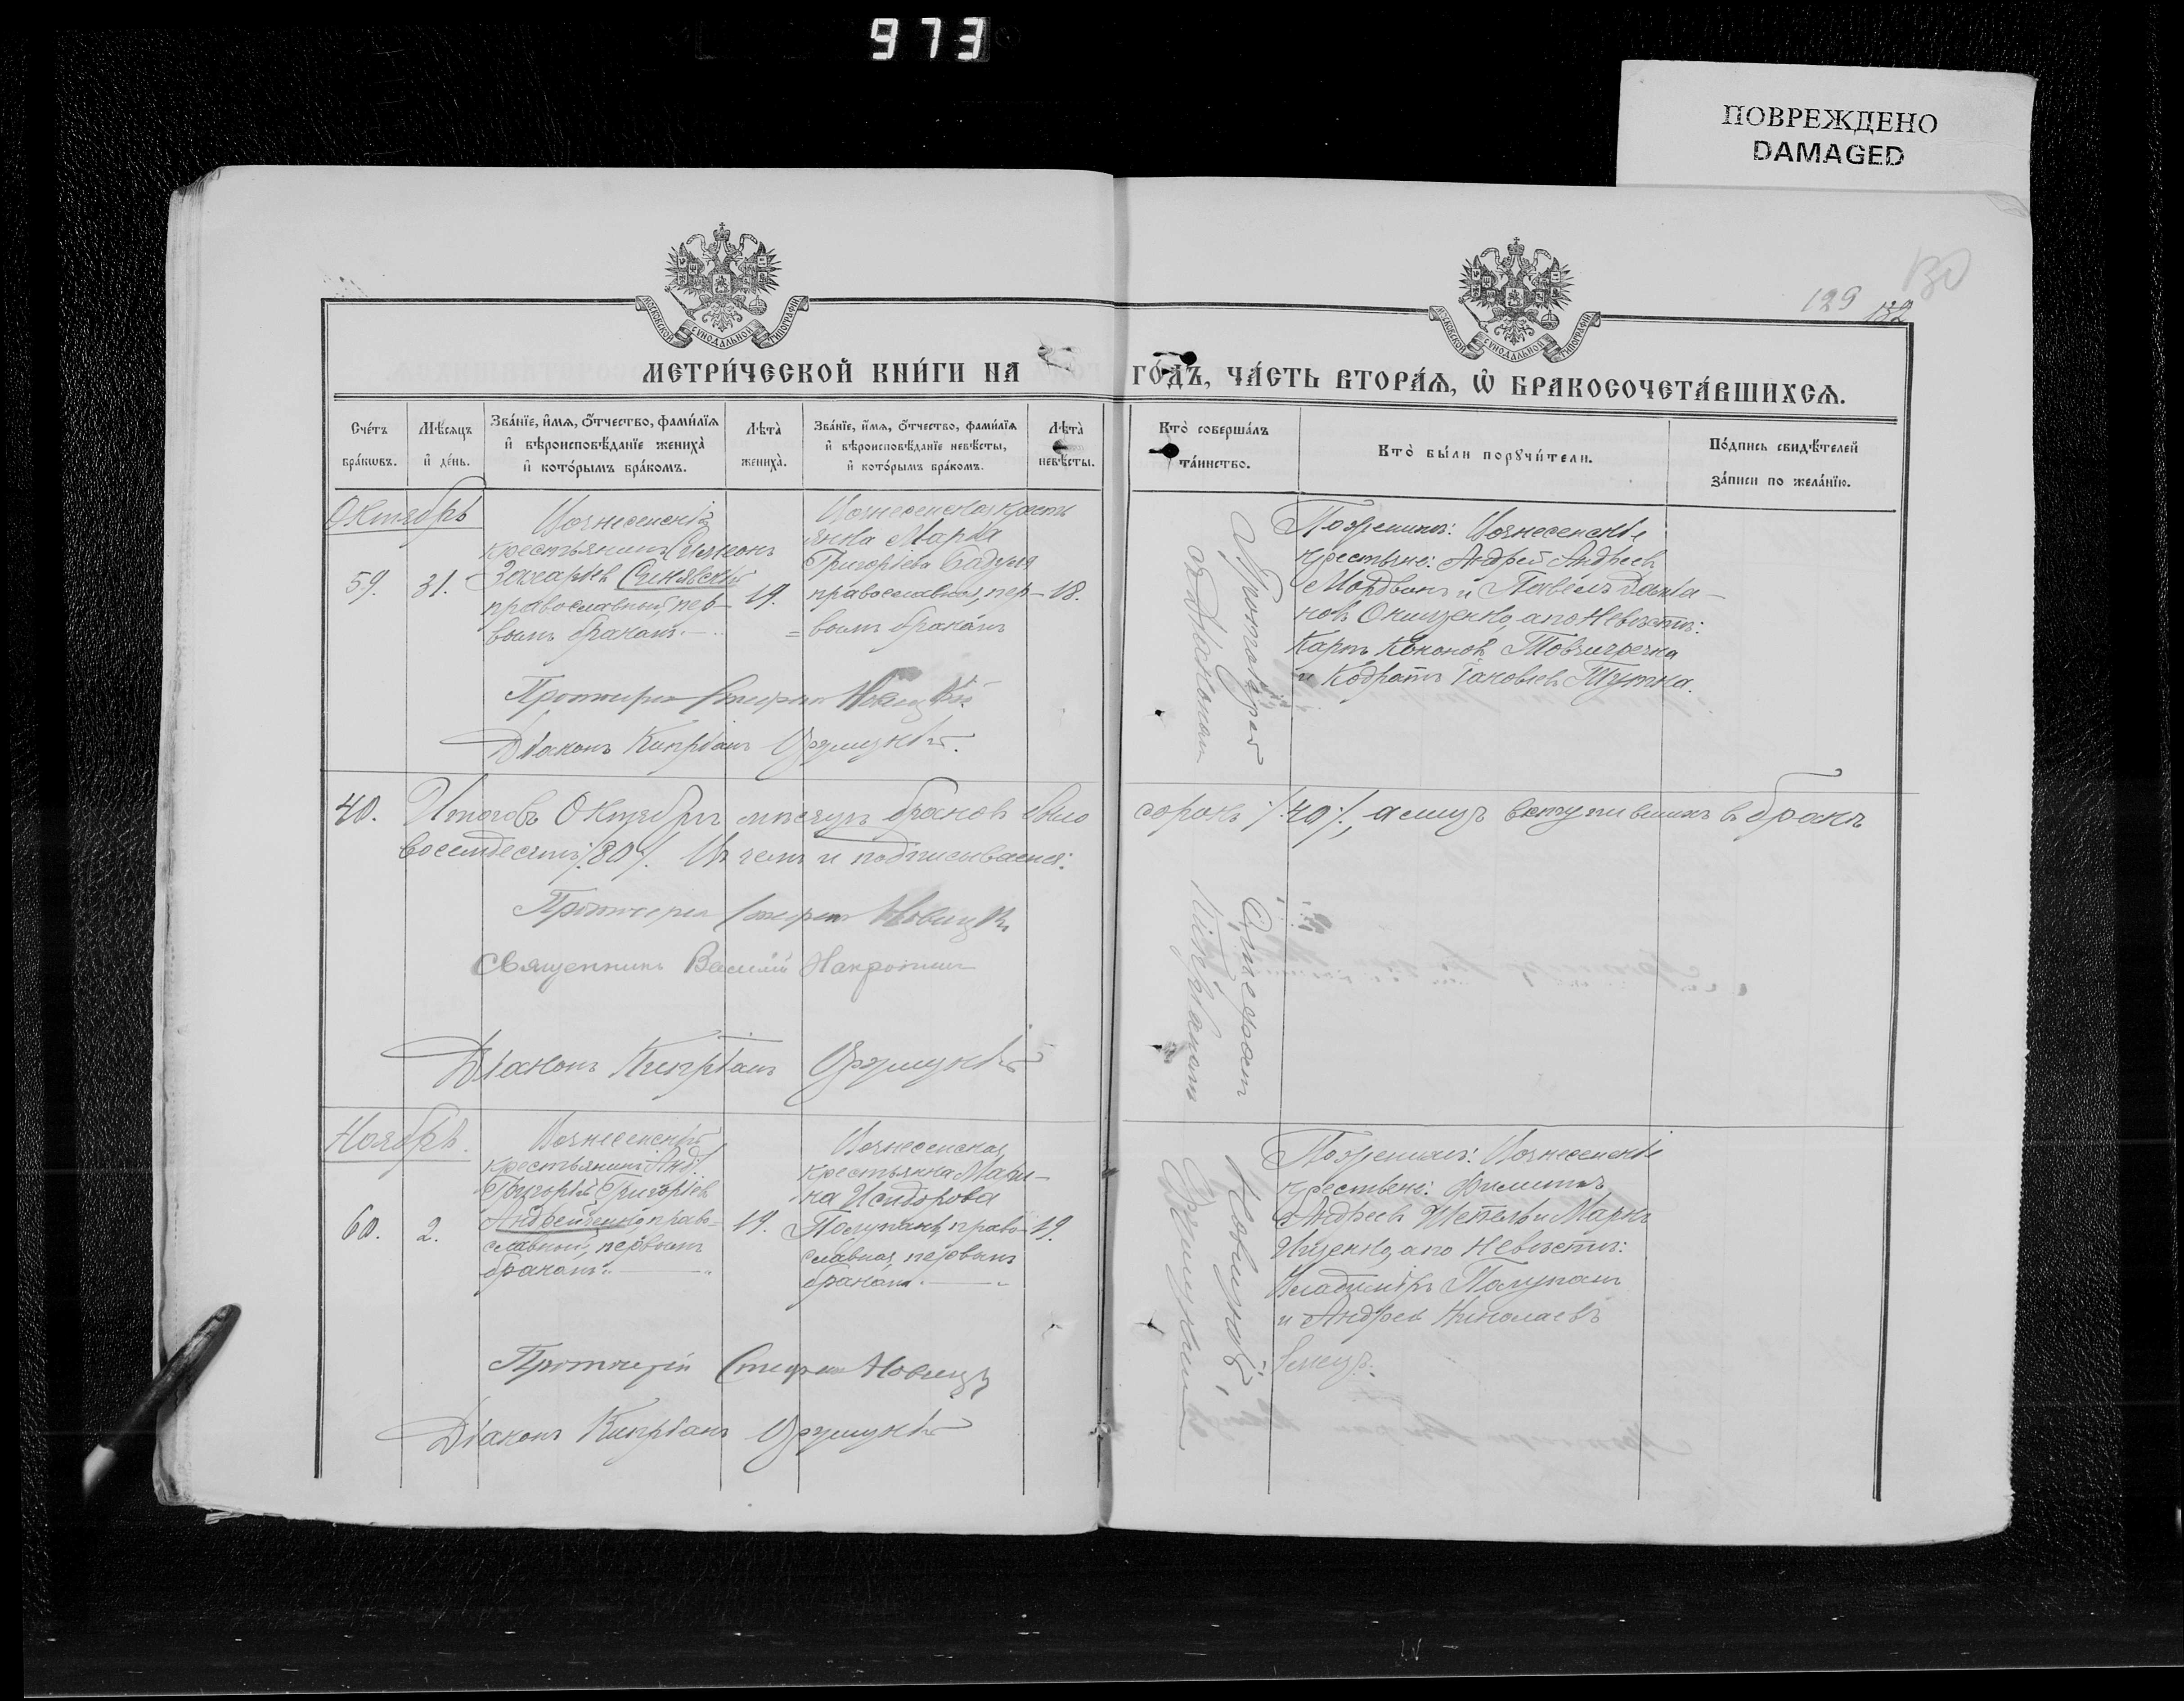 973
ПОВРЕЖДЕНО
DAMAGED
130
129 132
МОСКОВСКОЙ СѴНОДАЛЬНОЙ ТИПОГРАФІИ
МОСКОВСКОЙ СѴНОДАЛЬНОЙ ТИПОГРАФІИ
МЕТРИ́ЧЕСКОЙ КНИ́ГИ НА ГО́ДЪ, ЧА́СТЬ ВТОРА́Ѧ, Ѡ҆ БРАКОСОЧЕТА́ВШИХСѦ.
Сче́тъ бра́кѡвъ.
Мѣ́сѧцъ и҆ де́нь.
Зва́нїе, и҆́мѧ, ѻ҆́тчество, фами́лїѧ и҆ вѣроисповѣ́данїе жениха̀ и҆ кото́рымъ бра́комъ.
Лѣта̀ жениха̀.
Зва́нїе, и҆́мѧ, ѻ҆́тчество, фами́лїѧ и҆ вѣроисповѣ́данїе невѣ́сты, и҆ кото́рымъ бра́комъ.
Лѣта̀ невѣ́сты.
Кто̀ соверша́лъ та́инство.
Кто̀ бы́ли порꙋчи́тели.
По́дпись свидѣ́телей за́писи по жела́нїю.
Октябрь
59.
31.
Вознесенскій
крестьянинъ Симеонъ
Захаріевъ Синявскій
православный, пер-
вымъ бракомъ.
19.
Вознесенская кресть
янка Марѳа
Григоріева Бадуля
православная, пер-
вымъ бракомъ
18.
По женихѣ: Вознесенскіе
крестьяне: Андрей Андреевъ
Мордвинъ и Павелъ
новъ Онищенко, а по невѣстѣ:
Карпъ Кононовъ
и Кодратъ Іаковлевъ
Протоіерей Стефанъ Новицкій
Діаконъ Кипріанъ
40.
Итого въ Октябрѣ мѣсяцѣ браковъ было сорокъ /40/, а лицъ вступившихъ въ бракъ
восемдесятъ /80/. Въ чемъ и подписываемся:
Протоіерей Стефанъ Новицкій
Священникъ Василій
Діаконъ Кипріанъ
Протоіерей Стефанъ Новицкій
съ діакономъ Кипріаномъ
Ноябрь.
60.
2.
Вознесенскій
крестьянинъ
Григорій Григоріевъ
Андрейченко право-
славный, первымъ
бракомъ.
19.
Вознесенская
крестьянка Мари-
на Исидорова
Полупанъ, право-
славная, первымъ
бракомъ.
19.
По женихѣ: Вознесенскіе
крестьяне: Филиппъ
Андреевъ Шепель и Маркъ
Ищенко, а по невѣстѣ:
Владиміръ Полупанъ
и Андрей Николаевъ
Протоіерей Стефанъ Новицкій
Діаконъ Кипріанъ